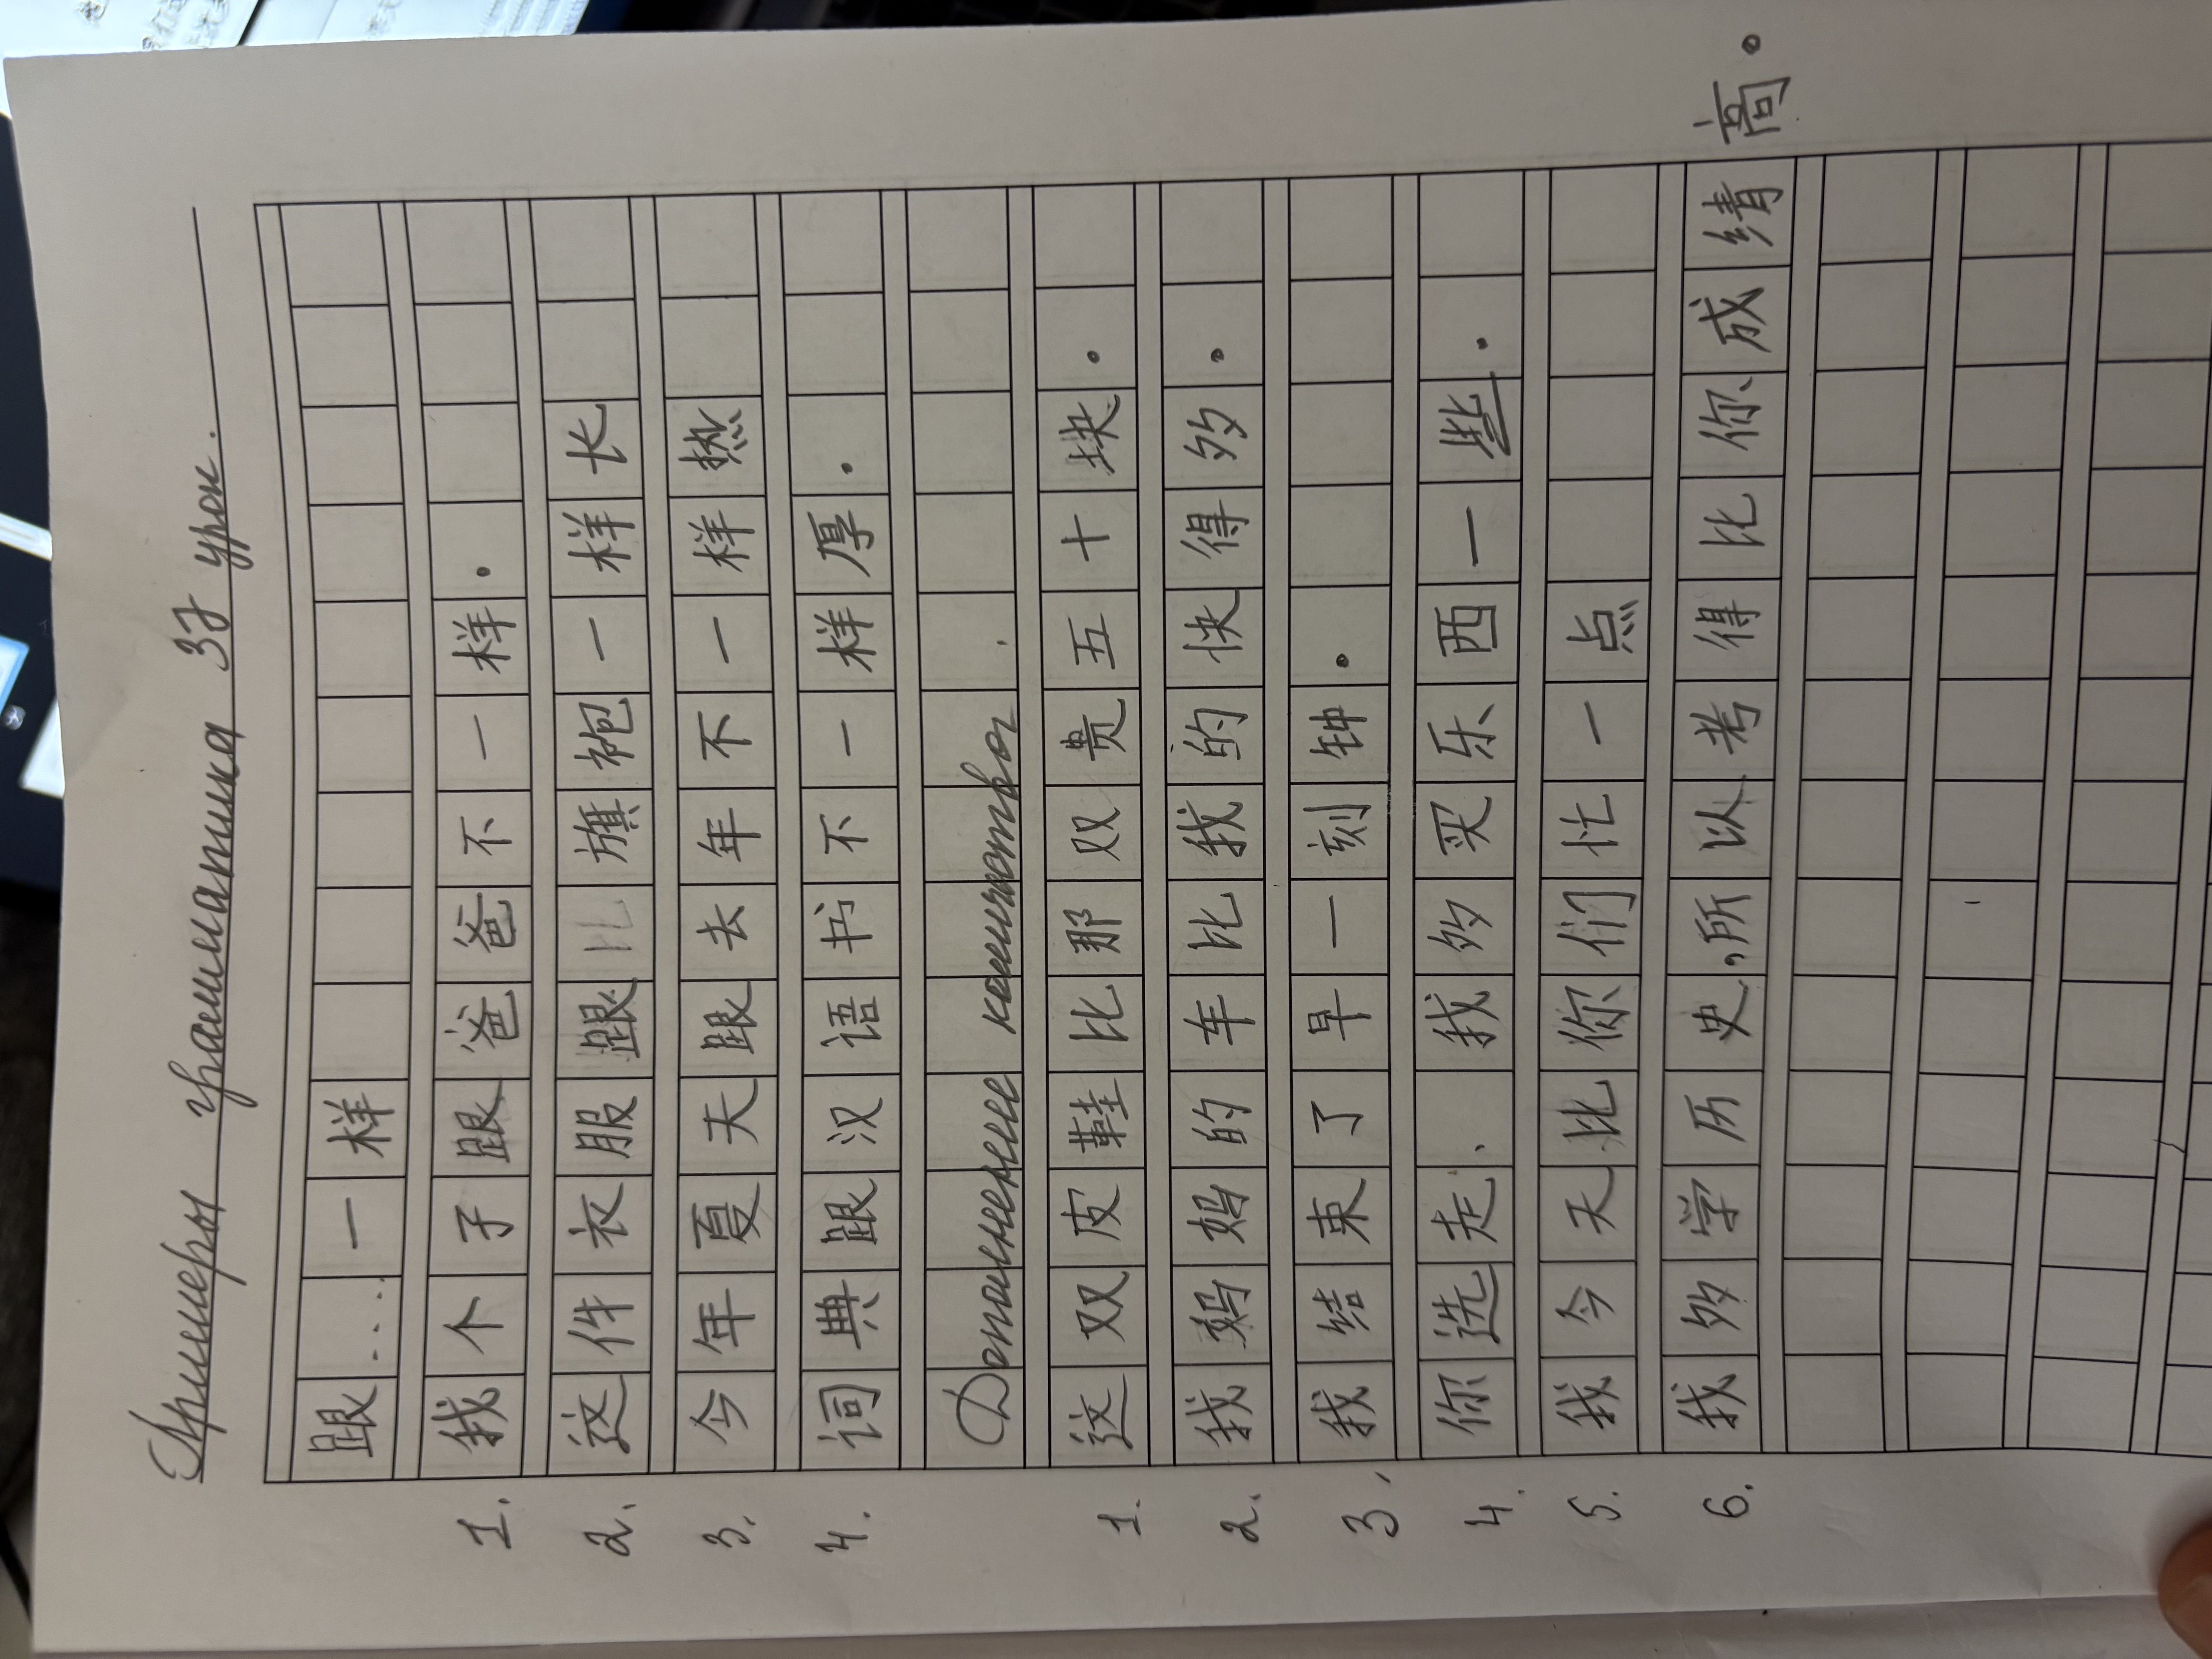 Примеры грамматика 37 урок.
跟 .... 一样
1. 我个子跟爸爸不一样.
2. 这件衣服跟比旗袍一样长
3. 今年夏天跟去年不一样热
4. 词典跟汉语书不一样厚.
Дополнение количества.
1. 这双皮鞋比那双贵五十块.
2. 我妈妈的车比我的快得多.
3. 我结束了早一刻钟.
4. 你选走、我多买乐西一些.
5. 我今天比你们忙一点
6. 我多学历史,所以考得比你成绩高.